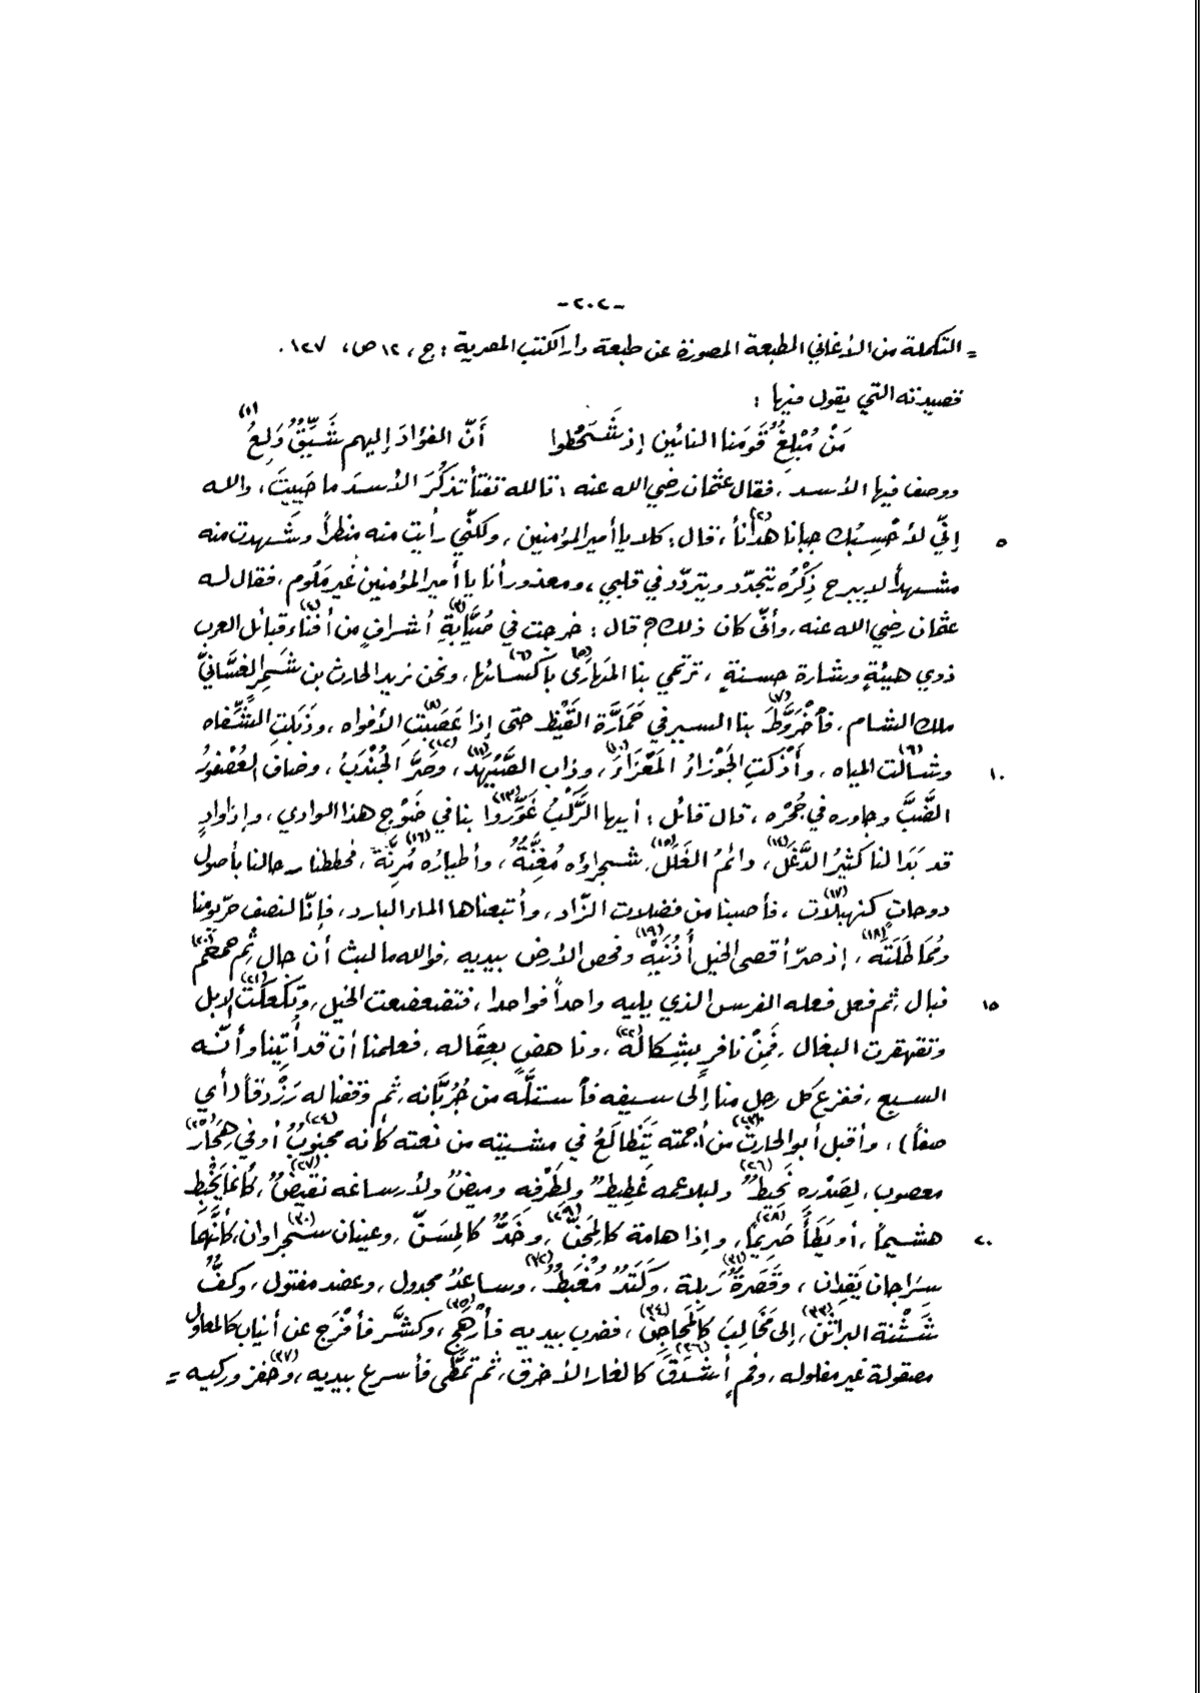 -٢٠٢-
= التكملة من الأغاني المطبعة المصورة عن طبعة دار الكتب المصرية : ج، ١٢ ص، ١٢٧ .
قصيدته التي يقول فيها :
مَنْ مُبْلِغٌ قَوْمَنا النائين إذ شَحَطُوا أَنّ الفؤادَ إليهم شَيِّقٌ وَلِعُ (١)
ووصف فيها الأسد، فقال عثمان رضي الله عنه : تالله تفتأ تذكُرَ الأسدَ ما حَييتَ، والله
٥ إنّي لأَحْسِبُك جبانا هدانأ (٢)، قال : كلا يا أمير المؤمنين، ولكنّي رأيت منه منظراً وشهدت منه
مشهداً لا يبرح ذِكْرُه يتجدّد ويتردّد في قلبي، ومعذور أنا يا أمير المؤمنين غير مَلُوم، فقال له
عثمان رضي الله عنه، وأنّى كان ذلك ؟ قال : خرجت في صُيَّابةِ (٣) أشرافٍ من أفناء (٤) قبائل العرب
ذوي هيئةٍ وشارة حسنةٍ، ترتمي بنا المَهارَى (٥) بأكسائها (٦)، ونحن نريد الحارث بن شَمِر الغسَّانيّ
ملك الشام، فأخْرَوَّطَ (٧) بنا السير في حَمَارَّة القَيْظ حتى إذا عَصَبت (٨) الأفواه، وذَبَلتِ الشِّفاه
١٠ وشالت (٩) المياه، وأَذْكَتِ الجَوْزاءُ المَعْزَاءَ (١٠)، وذاب الصَّيْهَد (١١)، وصَرَّ الجُنْدَبُ (١٢)، وضاف العُصْفورُ
الضَّبَّ وجاوره في جُحْره، قال قائل : أيها الرَّكْبُ غَوِّروا (١٣) بنا في ضَوْج هذا الوادي، وإذا وادٍ
قد بَدَا لنا كَثيرُ الدَّغَل (١٤)، دائمُ الغَلَل (١٥)، شجراؤه مُغِنَّةٌ، وأطياره مُرِنَّة (١٦)، فحططنا رحالنا بأصول
دوحاتٍ كنهبلات (١٧)، فأصبنا من فضلات الزّاد، وأتبعناها الماء البارد، فإنّا لنصف حرّ يومنا
ومُمَاطَلَتَه (١٨)، إذ صرّ أقصى الخيل أُذُنَيْه (١٩) وفحص الأرض بيديه، فوالله ما لبث أن جال ثم حمحم (٢٠)
١٥ فبال، ثم فعل فعله الفرس الذي يليه واحداً فواحدا، فتضعضعت الخيل، وتكعكت (٢١) الإبل
وتقهقرت البغال، فَمِنْ نافرٍ بِشِكاله (٢٢)، وناهضٍ بعِقَاله، فعلمنا أن قد أُتينا وأنّه
السبع، ففزع كل رجل منا إلى سيفه فأستلّه من جُرُبَّانه، ثم وقفنا له رَزْدَقاً (أي
صفاً)، وأقبل أبو الحارث (٢٣) من أجمته يَتَظالَعُ في مشيته من نعته كأنه مجنوبٌ (٢٤) أو في هِجَار (٢٥)
معصوب، لِصَدْرِه نَحِيطٌ (٢٦) ولبلاعمه غَطِيطٌ ولِطَرْفِه وميضٌ ولأرساغه نقيضٌ (٢٧)، كأنما يَخْبِط
٢٠ هشيماً، أو يَطَأُ صَرِيماً (٢٨)، وإذا هامة كالمِجَنّ (٢٩)، وخَدٌّ كالمِسَنّ، وعينان سَجراوان (٣٠)، كأنّهما
سِرَاجان يَقِدان، وقَصَرةٌ (٣١) رَبِلة، وكَتَدٌ مُغْبَط (٣٢)، وساعدٌ مجدول، وعضد مفتول، وكفٌّ
شَثْنة البراثن (٣٣)، إلى مَخَالِبَ كالمَحاجِن (٣٤)، فضرب بيديه فأرهَج (٣٥)، وكشَّر فأفرَج عن أنيابٍ كالمعاول
مصقولة غير مفلوله، وفمٍ أشدق (٣٦) كالغار الأخرق، ثم تمطَّى فأسرع بيديه، وحفز (٣٧) وركيه =